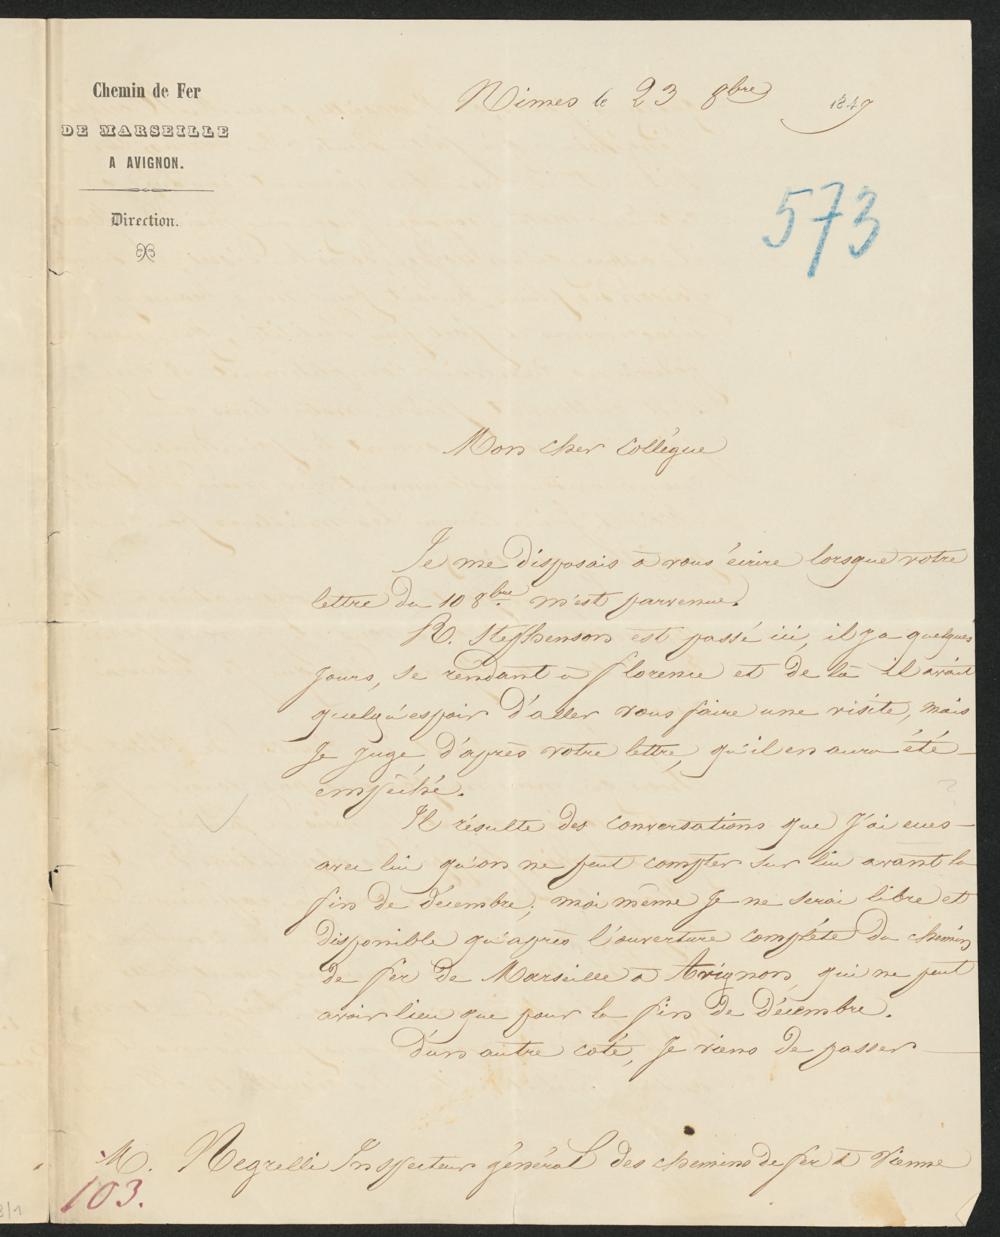 Chemin de Fer
DE MARSEILLE
A AVIGNON.
Direction.
Nimes le 23 8bre 1849
573
Mon cher Collègue
Je me disposais à vous écrire lorsque votre
lettre du 10 8bre m'est parvenue.
R. Stephenson est passé ici, il y a quelques
jours, se rendant à florence et de là il avait
quelqu'espoir d'aller vous faire une visite, mais
je juge, d'après votre lettre, qu'il en aura été
empêché.
Il résulte des conversations que j'ai eues
avec lui qu'on ne peut compter sur lui avant la
fin de décembre; moi même je ne serai libre et
disponible qu'après l'ouverture complète du chemin
de fer de Marseille à Avignon, qui ne peut
avoir lieu que pour la fin de Décembre.
D'un autre coté, je viens de passer
M. Negrelli Inspecteur général des chemins de fer à Vienne
103.